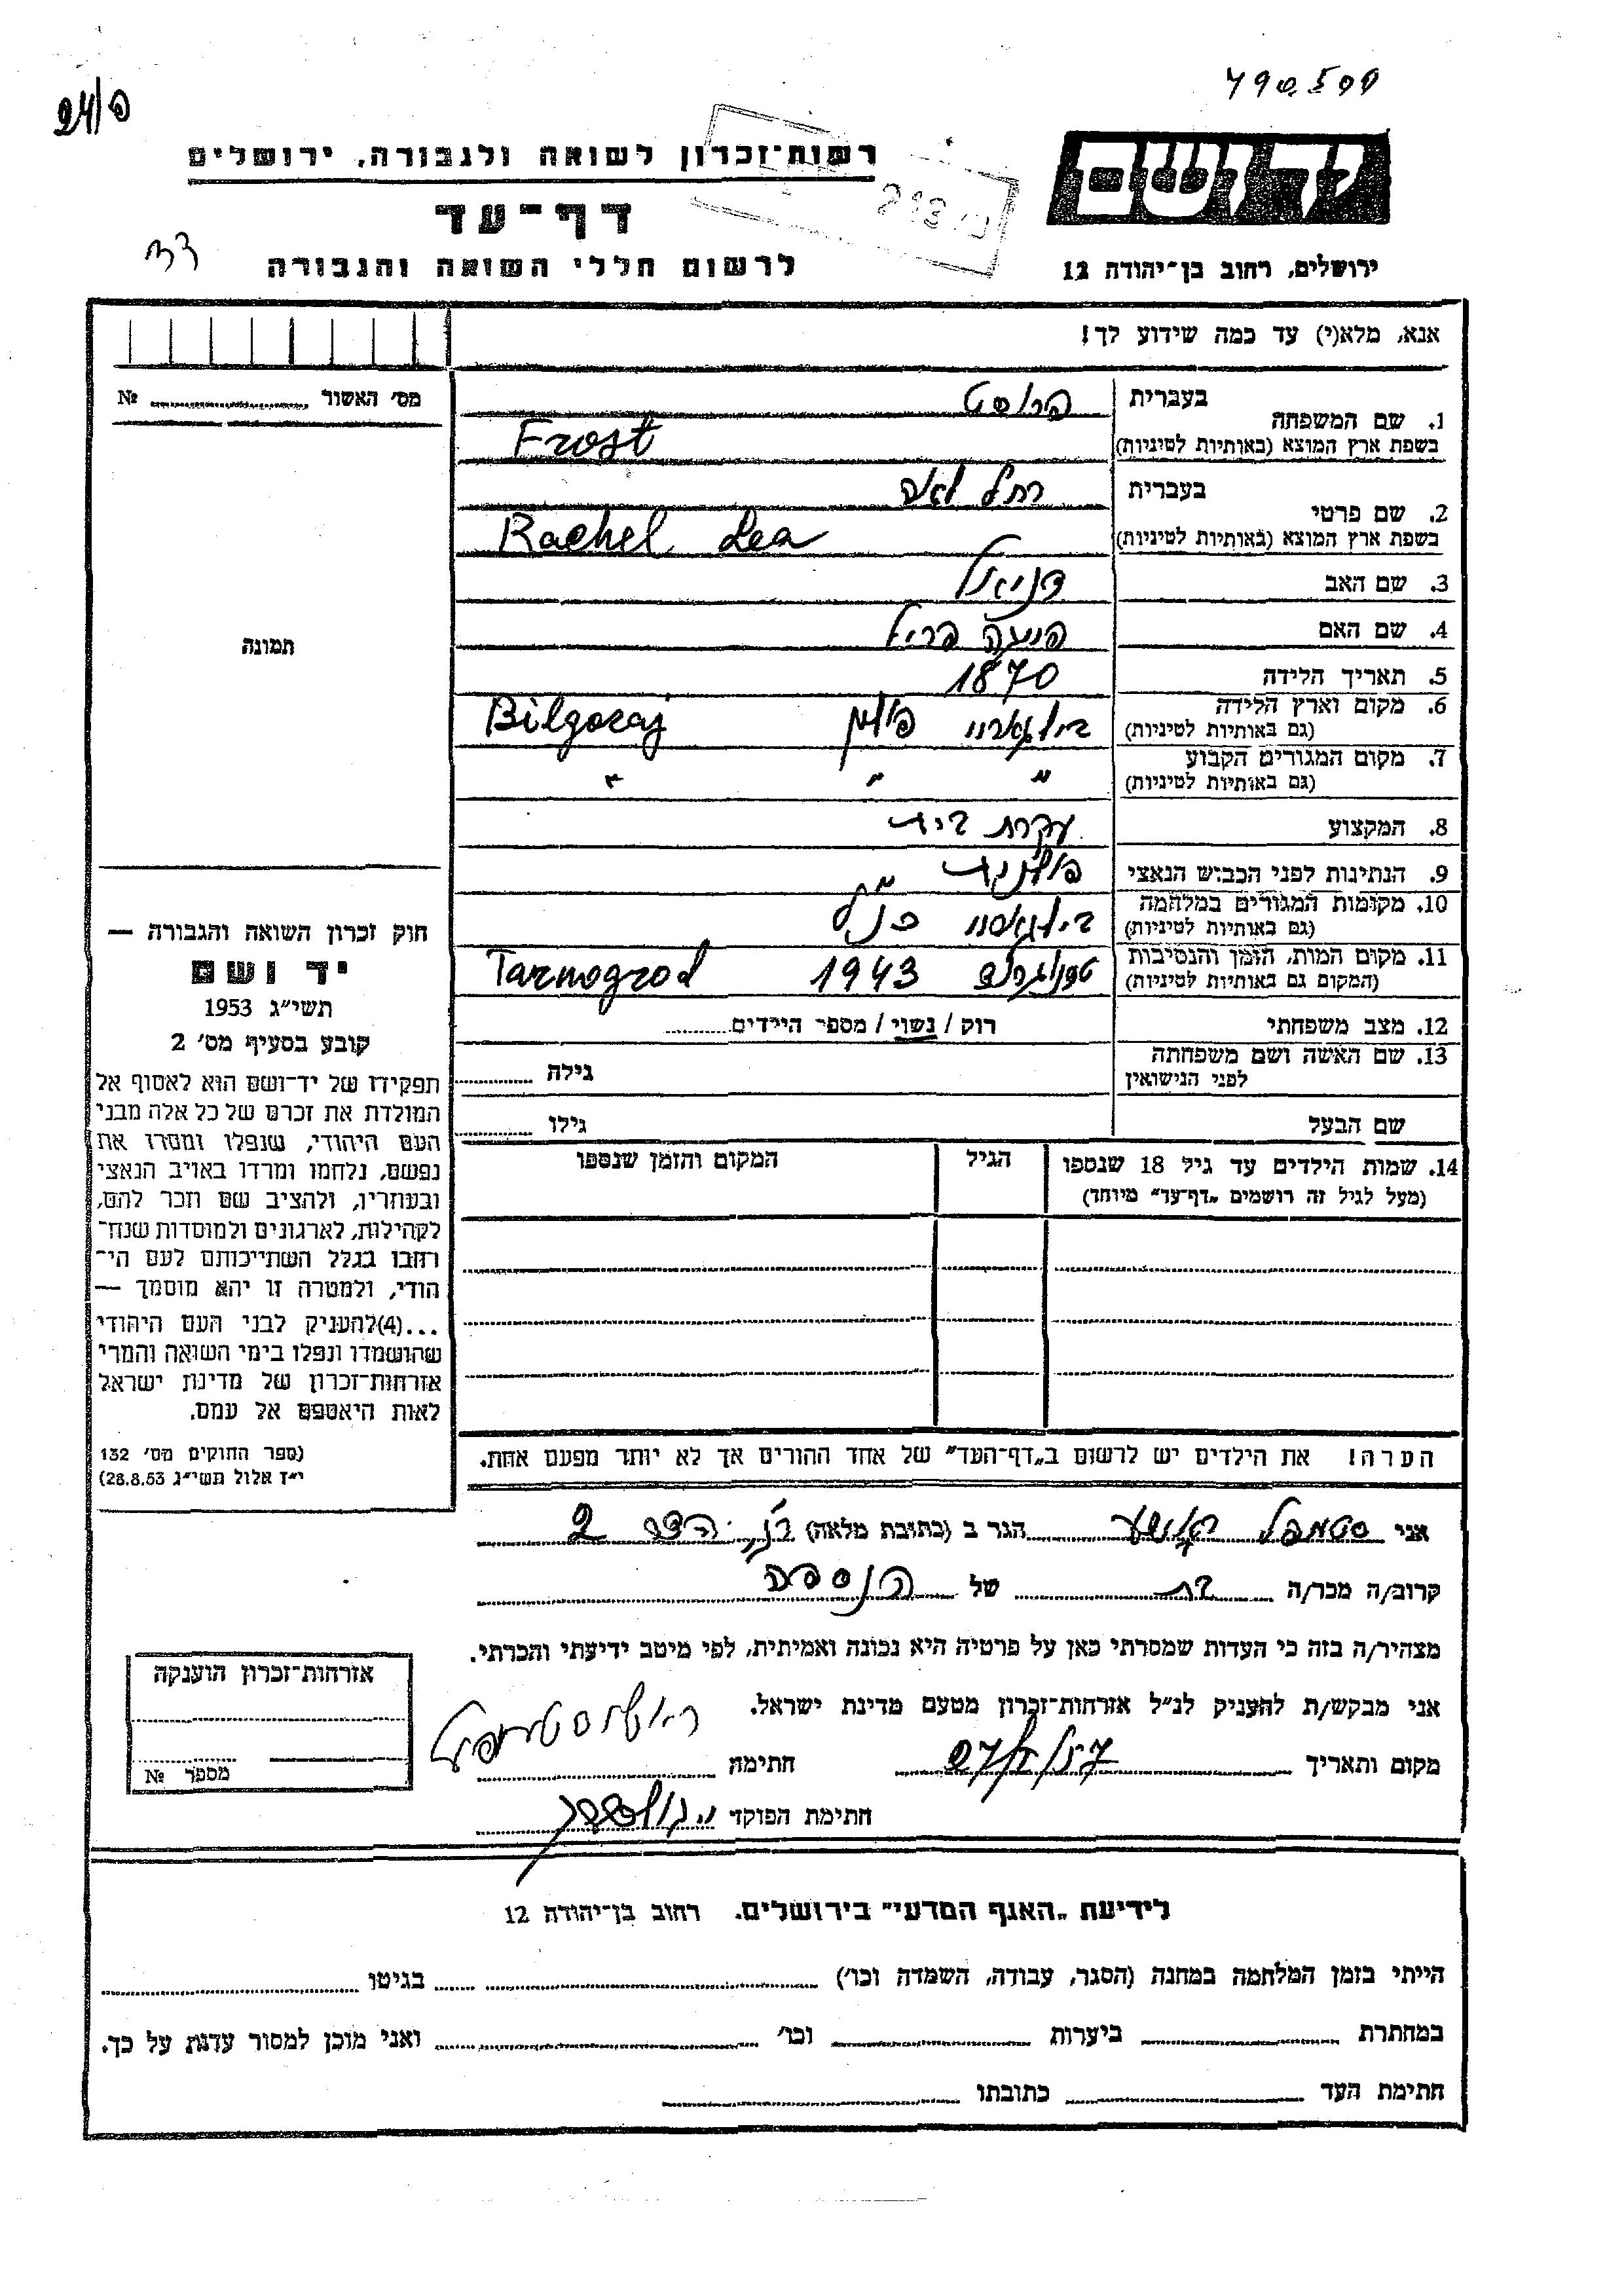 24/פ
790500
רשות־זכרון לשואה ולגבורה, ירושלים
יד ושם
דף־עד
לרשום חללי השואה והגבורה
ירושלים, רחוב בן־יהודה 12
אנא, מלא(י) עד כמה שידוע לך!
מס׳ האשור № 
1. שם המשפחה בעברית פרוסט
בשפת ארץ המוצא (באותיות לטיניות) Frost
2. שם פרטי בעברית רחל לאה
בשפת ארץ המוצא (באותיות לטיניות) Rachel Lea
3. שם האב דניאל
4. שם האם
5. תאריך הלידה 1870
6. מקום וארץ הלידה (גם באותיות לטיניות) בילגוריי פולין Bilgoraj
7. מקום המגורים הקבוע (גם באותיות לטיניות) " " "
8. המקצוע עקרת בית
9. הנתינות לפני הכבוש הנאצי פולנית
10. מקומות המגורים במלחמה (גם באותיות לטיניות)
11. מקום המות, הזמן והנסיבות (המקום גם באותיות לטיניות) 1943 Tarnogrod
12. מצב משפחתי רוק / נשוי / מספר הילדים
13. שם האשה ושם משפחתה לפני הנישואין גילה
שם הבעל גילו
14. שמות הילדים עד גיל 18 שנספו הגיל המקום והזמן שנספו
(מעל לגיל זה רושמים „דף־עד” מיוחד)
הערה! את הילדים יש לרשום ב„דף־העד” של אחד ההורים אך לא יותר מפעם אחת.
תמונה
חוק זכרון השואה והגבורה —
יד ושם
תשי״ג 1953
קובע בסעיף מס׳ 2
תפקידו של יד־ושם הוא לאסוף אל
המולדת את זכרם של כל אלה מבני
העם היהודי, שנפלו ומסרו את
נפשם, נלחמו ומרדו באויב הנאצי
ובעוזריו, ולהציב שם וזכר להם,
לקהילות, לארגונים ולמוסדות שנח־
רחבו בגלל השתייכותם לעם הי־
הודי, ולמטרה זו יהא מוסמך —
...(4) להעניק לבני העם היהודי
שהושמדו ונפלו בימי השואה והמרי
אזרחות־זכרון של מדינת ישראל
לאות היאספם אל עמם.
(ספר החוקים מס׳ 132
י״ז אלול תשי״ג 28.8.53)
אני הגר ב (כתובת מלאה)
קרוב/ה מכר/ה בת של הנספה
מצהיר/ה בזה כי העדות שמסרתי כאן על פרטיה היא נכונה ואמיתית, לפי מיטב ידיעתי והכרתי.
אני מבקש/ת להעניק לנ״ל אזרחות־זכרון מטעם מדינת ישראל.
מקום ותאריך חתימה
חתימת הפוקד
אזרחות־זכרון הוענקה
מספר №
לידיעת „האגף המדעי” בירושלים. רחוב בן־יהודה 12
הייתי בזמן המלחמה במחנה (הסגר, עבודה, השמדה וכו׳) בגיטו
במחתרת ביערות וכו׳ ואני מוכן למסור עדות על כך.
חתימת העד כתובתו